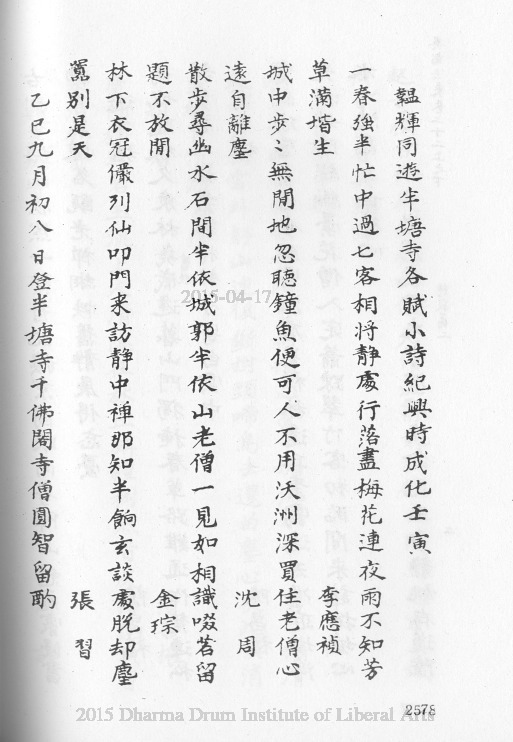 韞輝同遊半塘寺各賦小詩紀興時成化壬寅
一春強半忙中過七客相將靜處行落盡梅花連夜雨不知芳
草滿堦生 李應禎
城中步〻無閒地忽聽鐘魚便可人不用沃洲深買住老僧心
遠自離塵 沈周
散步尋幽水石間半依城郭半依山老僧一見如相識啜茗留
題不放閒 金琮
林下衣冠儼列仙叩門来訪静中禅那知半餉玄談處脱却塵
囂別是天 張習
乙巳九月初八日登半塘寺千佛閣寺僧圓智留酌
2015-04-17
2578
2015 Dharma Drum Institute of Liberal Arts